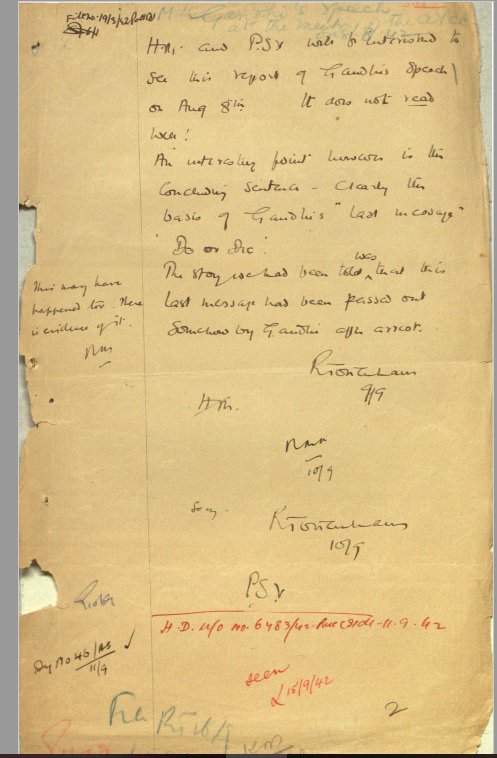 File No. 19/3/42 Poll(I)
M. K. Gandhi's Speech
at the meeting of the AICC
8.8.42
H.M. and P.S.V will be interested to
see this report of Gandhi's Speech
on Aug 8th. It does not read
well!
An interesting point however is the
concluding sentence – clearly the
basis of Gandhi's "last message"
'Do or Die'.
The story we had been told was that this
last message had been passed out
somehow by Gandhi after arrest.
This may have
happened too. There
is evidence of it.
RTottenham
9/9
H.M.
10/9
Secy.
RTottenham
10/9
P.S.V
H.D. U/O No. 6483/42-Poll(I) dt-11-9-42
Dy No 46/AS
11/9
seen
15/9/42
2